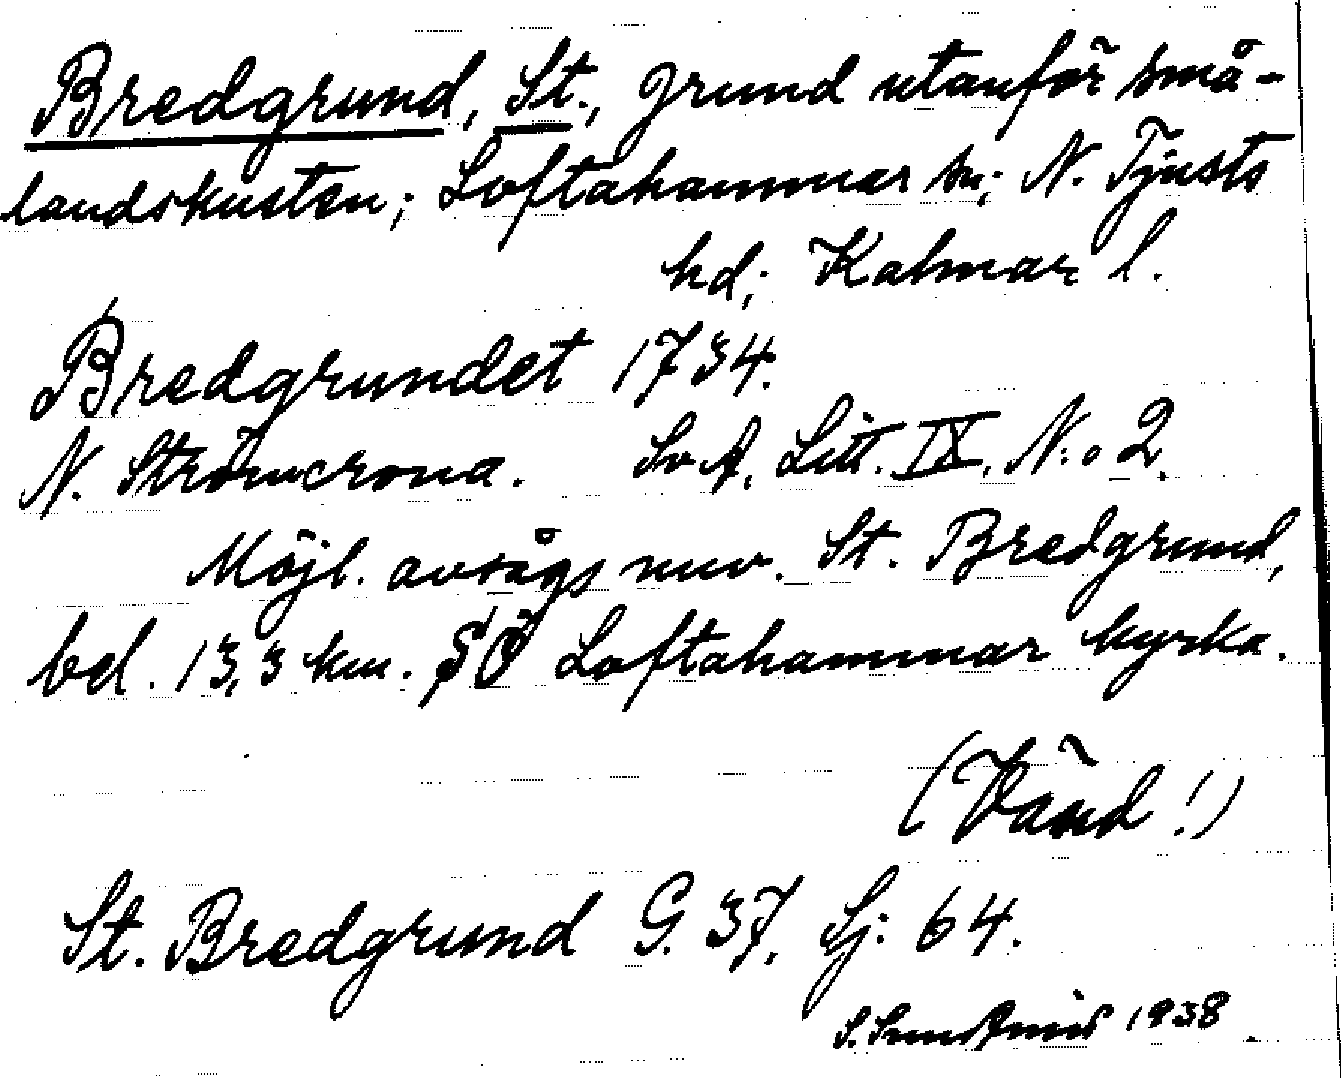 Bredgrund, St., grund utanför små-
landskusten; Loftahammar sn; N. Tjusts
hd; Kalmar l.
Bredgrundet 1734.
N. Strömcrona. SvA, Litt. IX, N:o 2.
Möjl. avsågs nuv. St. Bredgrund,
bel. 13,3 km. SÖ Loftahammar kyrka.
(Vänd!)
St. Bredgrund G. 37, Sj: 64.
S. 1938